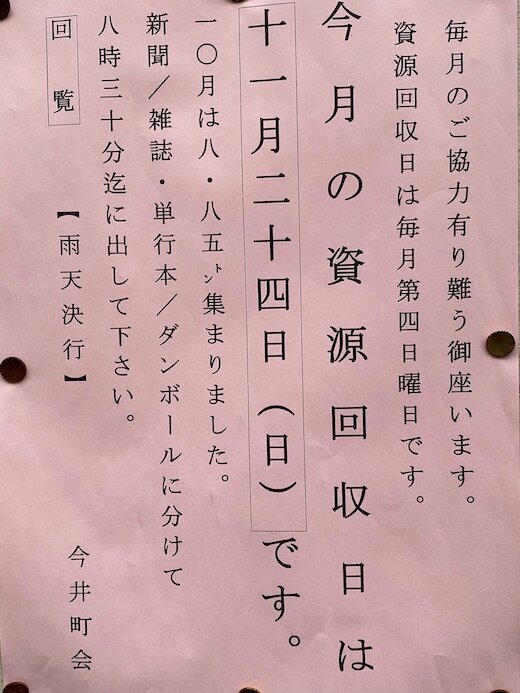 毎月のご協力有り難う御座います。
資源回収日は毎月第四日曜日です。
今月の資源回収日は
十一月二十四日(日)です。
一〇月は八・八五㌧集まりました。
新聞/雑誌・単行本/ダンボールに分けて
八時三十分迄に出して下さい。
回覧
【雨天決行】
今井町会